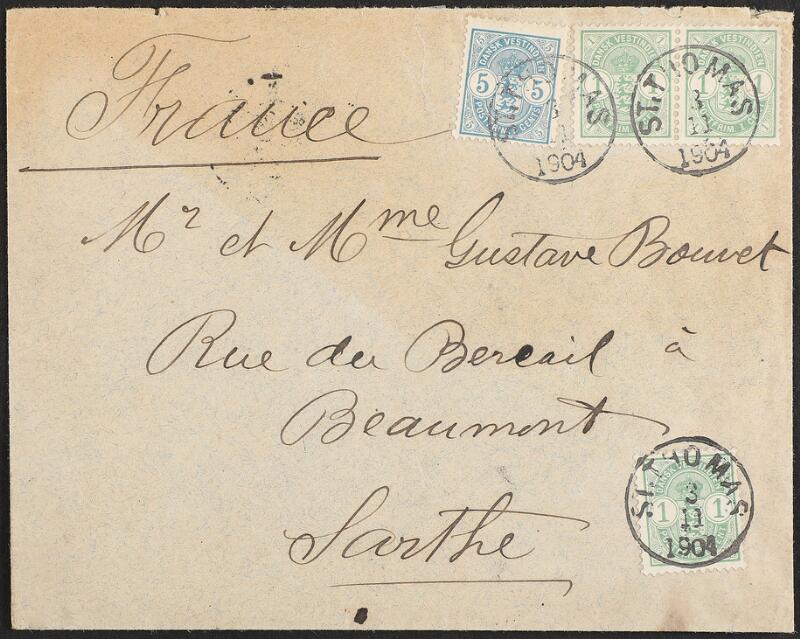 France
5 DANSK VESTINDIEN 5
5 5
POST CENTS
DANSK VESTINDIEN
1
FRIM
DANSK VESTINDIEN
1 1
FRIM 1 C
ST. THOMAS
3
11
1904
ST. THOMAS
3
11
1904
Mr et Mme Gustave Bouvet
Rue du Bercail à
Beaumont
Sarthe
DANSK
1 1
ST. THOMAS
3
11
1904